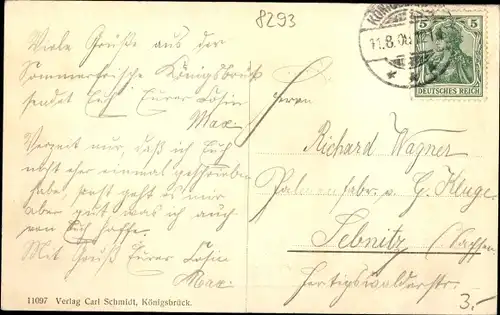 8293
KÖNIGSBRÜCK
11.8.08
5 5
DEUTSCHES REICH
Viele Grüße aus der
Sommerfrische Königsbrück
sendet Euch Eurer Cosin
Max.
Verzeit nur, daß ich Euch
nicht eher einmal geschrieben
habe, sonst geht es mir
aber gut was ich auch
von Euch hoffe.
Mit Gruß Eurer Cosin
Max.
Herrn
Richard Wagner
Palmenfabr. v. G. Kluge.
Sebnitz (Sachsen
Hertigswalderstr.
3.-
11097 Verlag Carl Schmidt, Königsbrück.